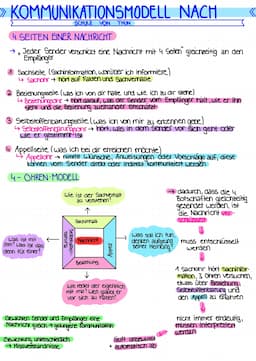 KOMMUNIKATIONSMODELL NACH
SCHULZ VON THUN
4 SEITEN EINER NACHRICHT
→ "Jeder Sender verschickt eine Nachricht mit 4 Seiten" gleichzeitig an den
Empfänger
① Sachseite (Sachinformation, worüber ich informiere)
↳ Sachohr → hört auf Fakten und Sachverhalte
② Beziehungsseite (was ich von dir halte und wie ich zu dir stehe)
↳ Beziehungsohr → hört darauf, was der Sender vom Empfänger hält, wie er ihn
sieht und die Beziehung zueinander
③ Selbstoffenbarungsseite (was ich von mir zu erkennen gebe)
↳ Selbstoffenbarungsohr → hört, was in dem Sender vor sich geht oder
wie er gestimmt ist
④ Appellseite (was ich bei dir erreichen möchte)
↳ Appellohr → nimmt Wünsche, Anweisungen oder Vorschläge auf, diese
können vom Sender direkt oder indirekt kommuniziert werden
4-OHREN-MODELL
Wie ist der Sachverhalt
zu verstehen?
Sachinhalt
Was ist mit
ihm? Was ist das
denn für einer?
Nachricht
Appell
Was soll ich tun,
denken aufgrund
seiner Meinung?
Beziehung
Wie redet der eigentlich
mit mir? Wen glaubt er
vor sich zu haben?
→ dadurch, dass die 4
Botschaften gleichzeitig
gesendet werden, ist
die Nachricht
muss entschlüsselt
werden
nicht immer eindeutig,
müssen interpretiert
werden
Gewichten Sender und Empfänger eine
Nachricht gleich → gelungene Kommunikation
Gewichtung unterschiedlich
→ Missverständnisse
automatisch ab